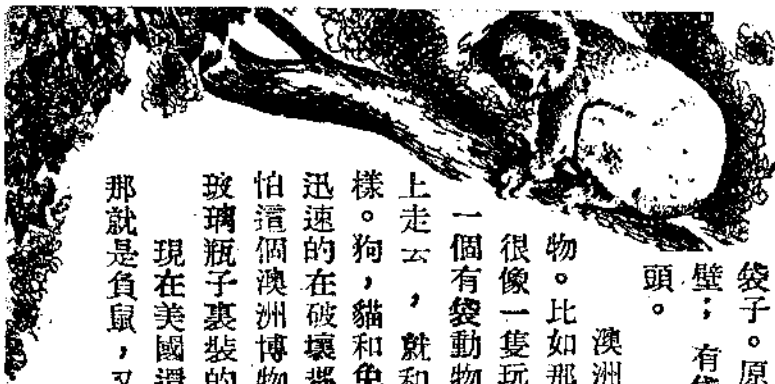 袋子。原
壁；有
頭。
澳洲
物。比如那
很像一隻玩
一個有袋動物
上走云，就和
樣。狗，貓和
迅速的在破壞
怕這個澳洲博物
玻璃瓶子裏裝的
現在美國還
那就是負鼠，又